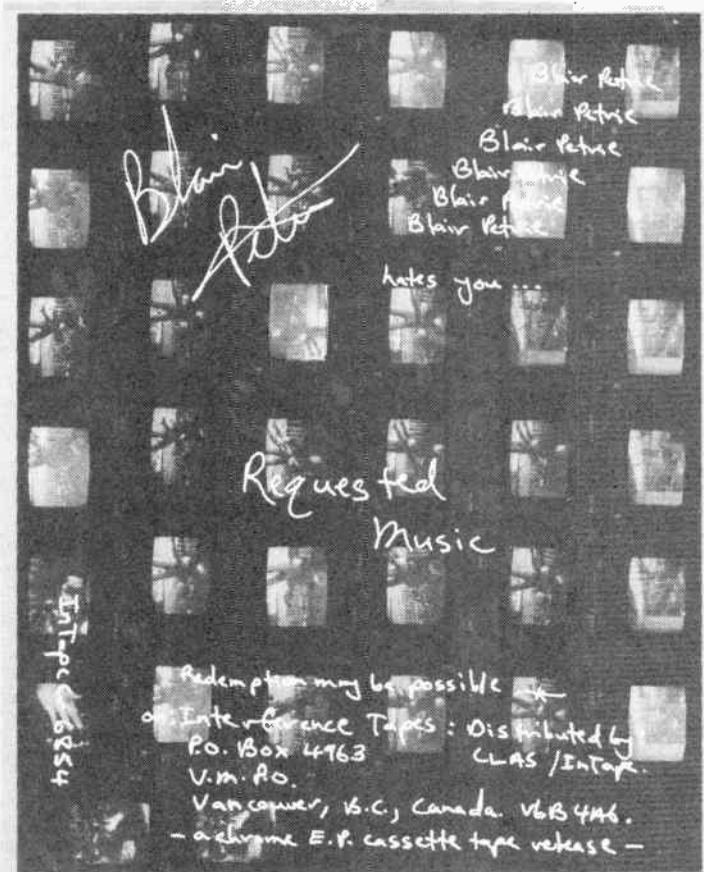 Blair Petrie
Blair Petrie
Blair Petrie
Blair Petrie
Blair Petrie
Blair Petrie
Blair Petrie
hates you...
Requested
Music
Redemption may be possible
on: Interference Tapes: Distributed by
P.O. Box 4963 CLAS / InTape.
V.M.P.O.
Vancouver, B.C., Canada. V6B 4A6.
- a chrome E.P. cassette tape release -
InTape 6854